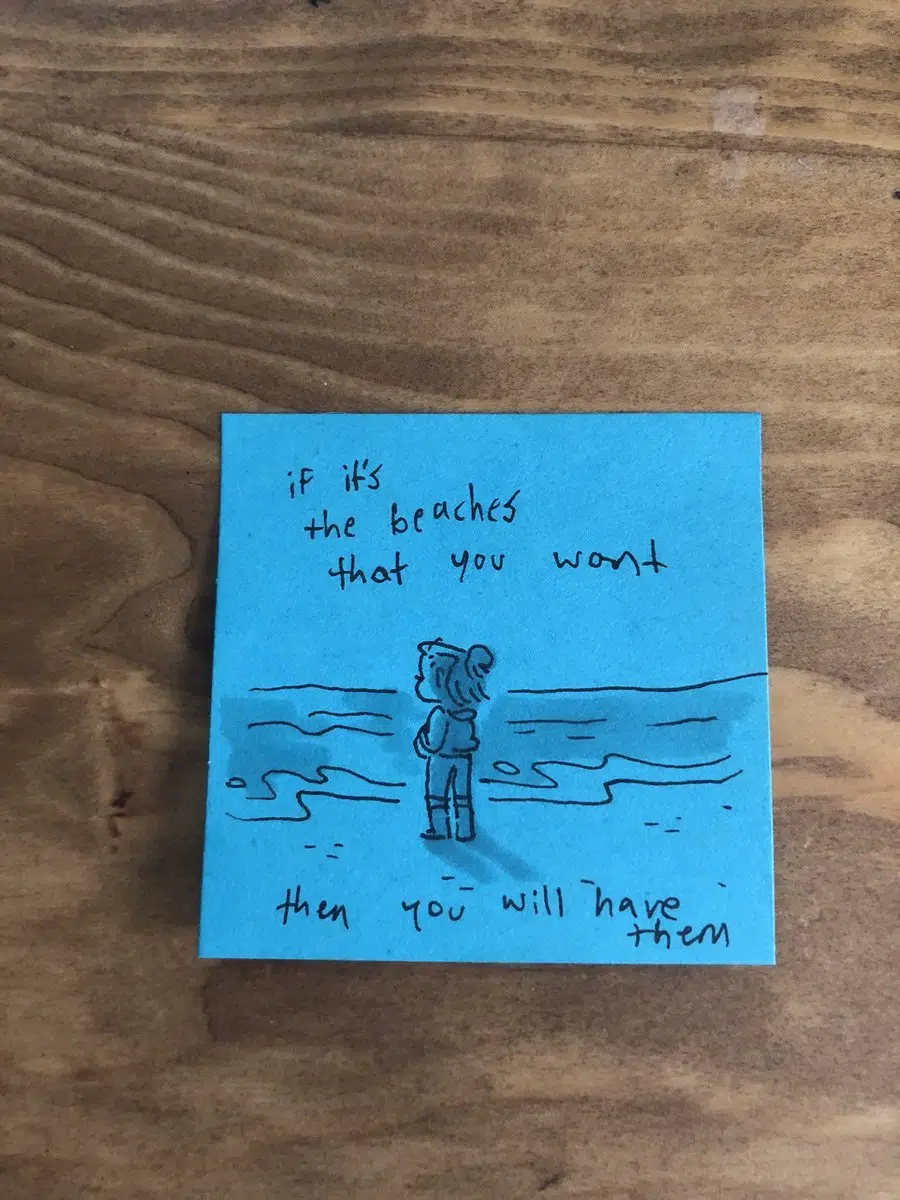 if it's
the beaches
that you want
then you will have
them